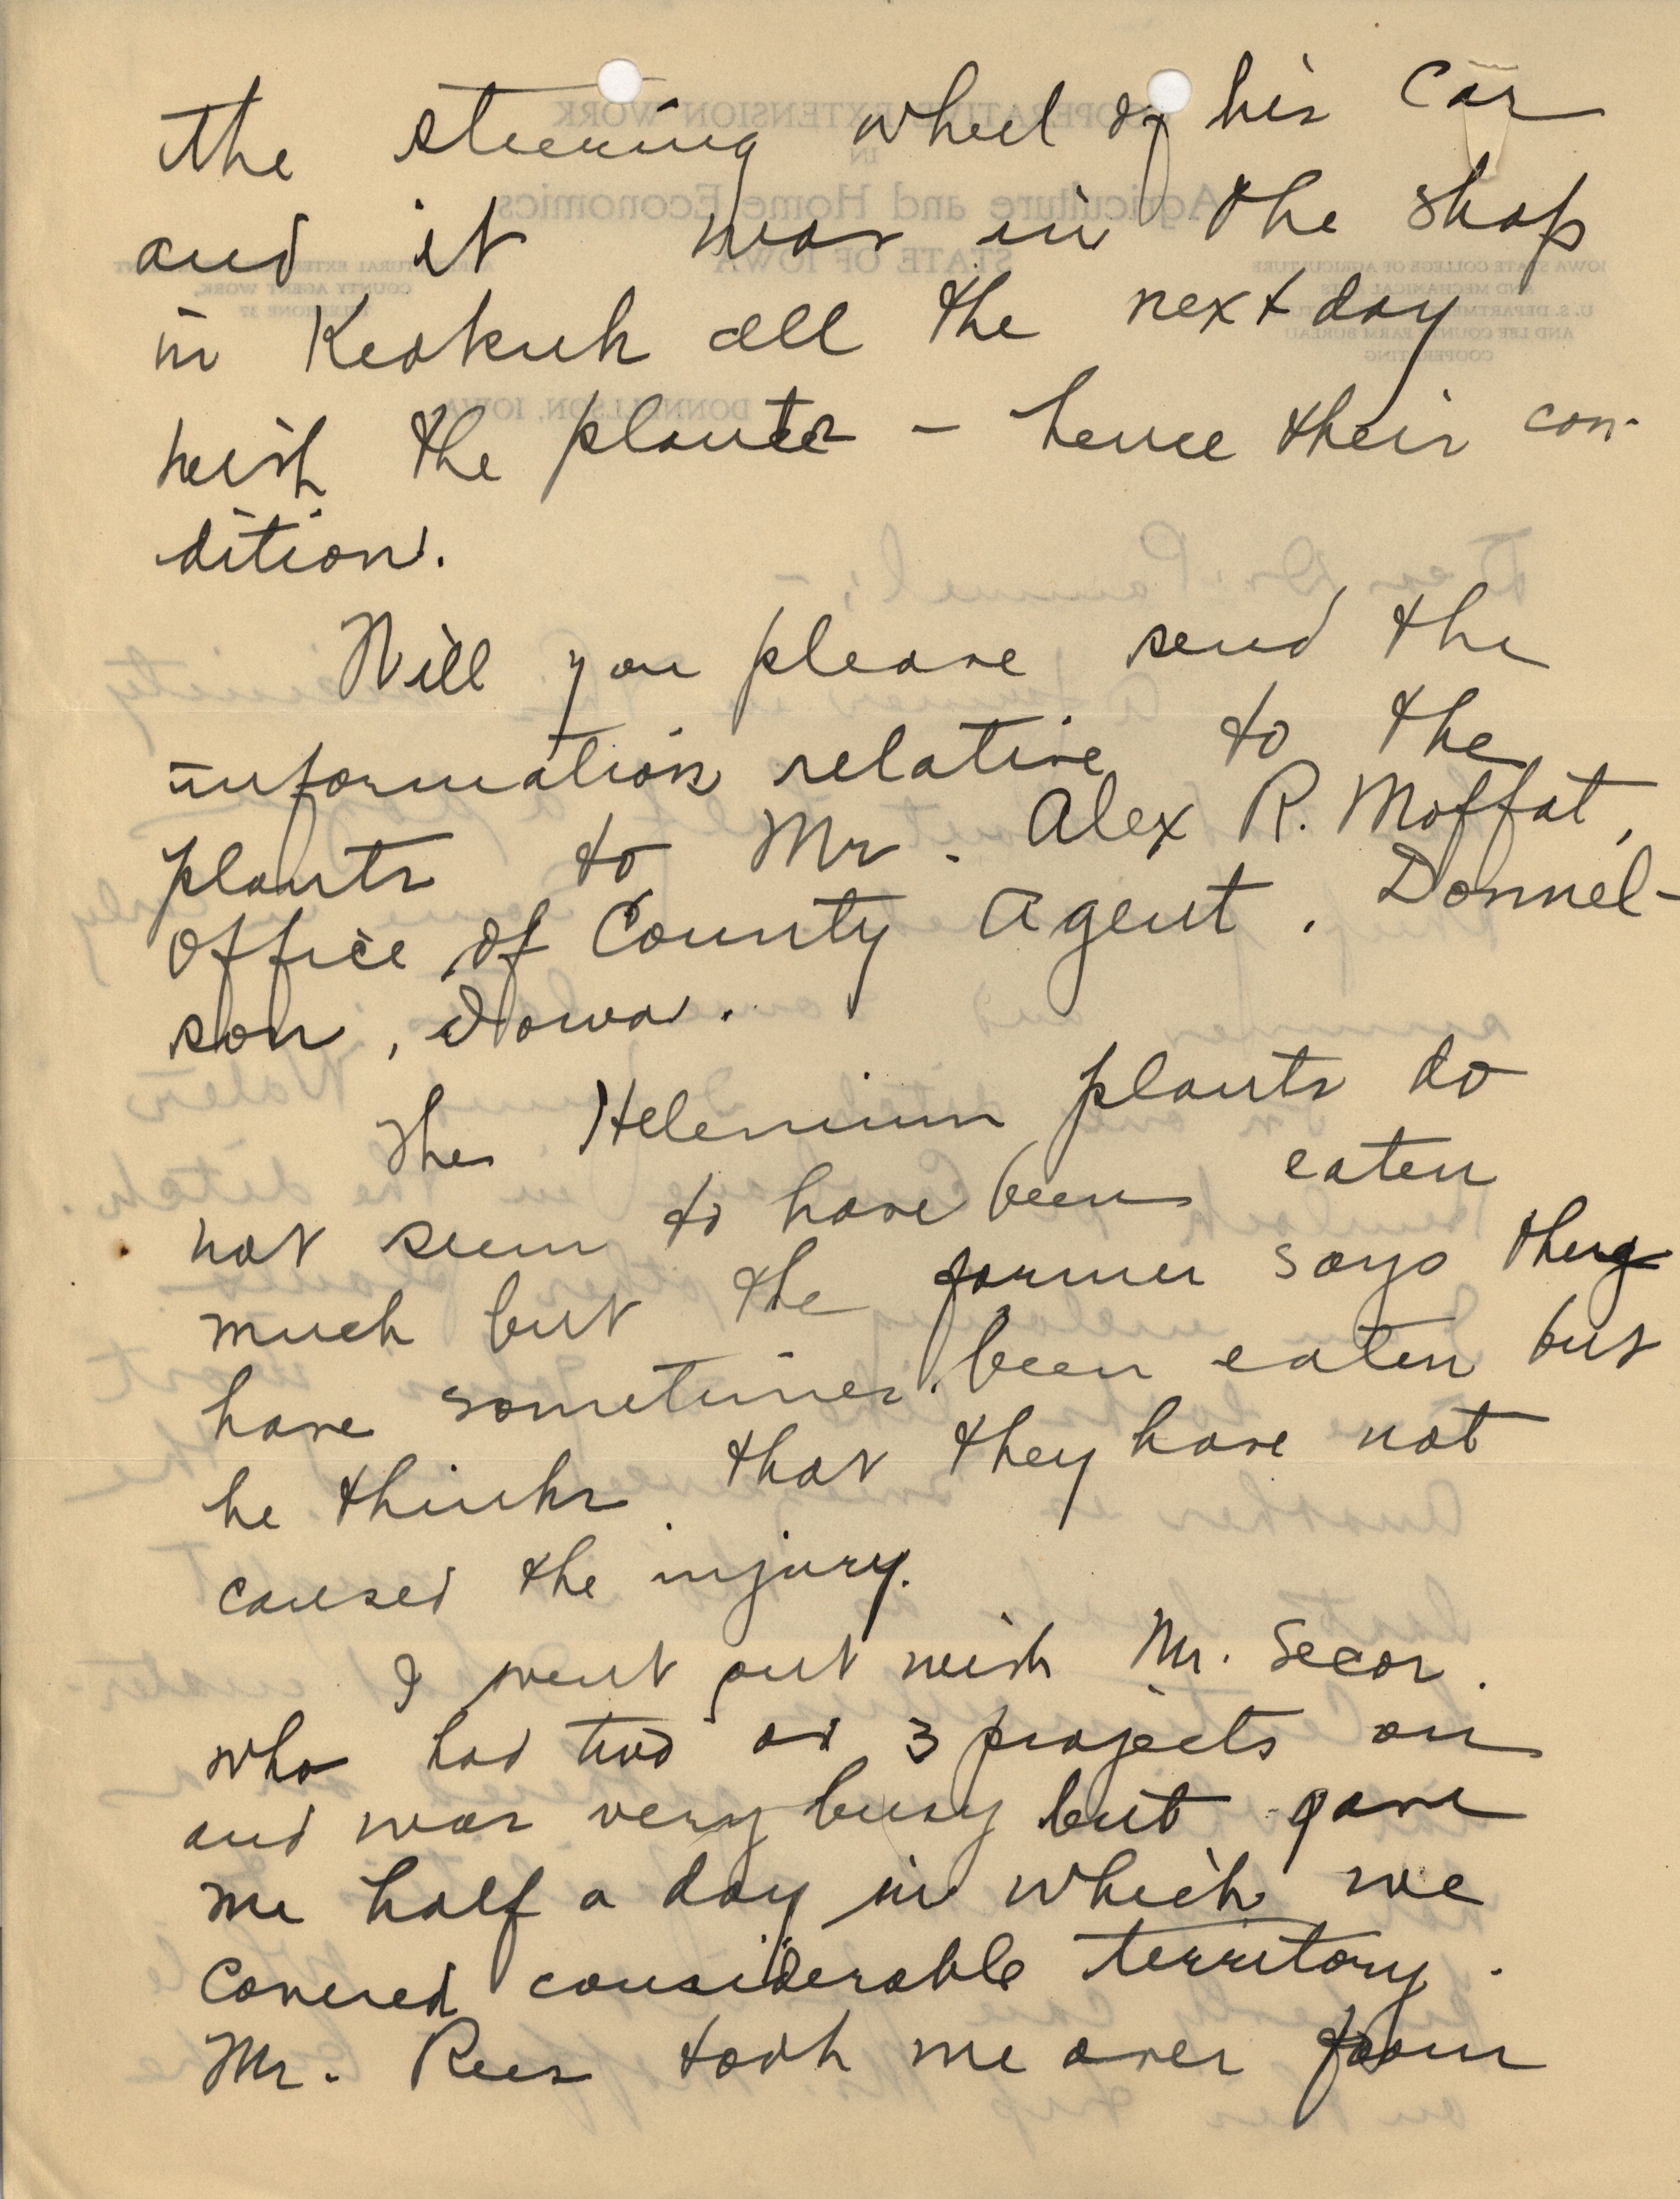 the steering wheel of his car
and it was in the shop
in Keokuk all the next day
with the plants - hence their con-
dition.
Will you please send the
information relative to the
plants to Mr. Alex R. Moffat,
office of County Agent. Donnel-
son, Iowa.
The Helenium plants do
not seem to have been eaten
much but the farmer says they
have sometimes been eaten but
he thinks that they have not
caused the injury.
I went out with Mr. Secor
who had two or 3 projects on
and was very busy but gave
me half a day in which we
covered considerable territory.
Mr. Rees took me over from